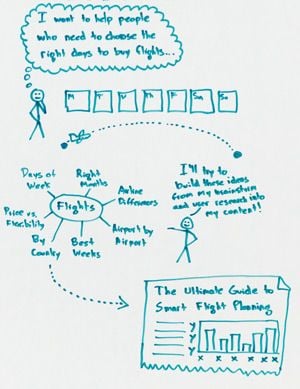 I want to help people
who need to choose the
right days to buy flights...
M T W Th F Sa Su
I'll try to
build these ideas
from my brainstorm
and user research into
my content!
Flights
Days of
Week
Right
Months
Airline
Differences
Airport by
Airport
Best
Weeks
By
Country
Price vs.
Flexibility
The Ultimate Guide to
Smart Flight Planning
Y
Y
Y
x x x x x x